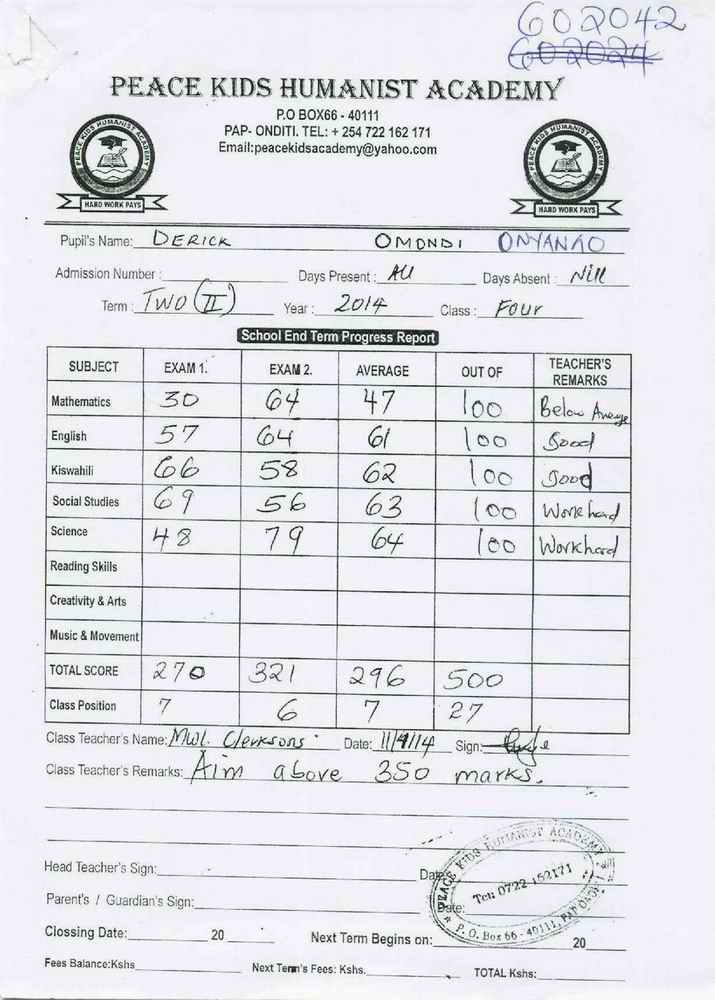 602042
602024
PEACE KIDS HUMANIST ACADEMY
P.O BOX66 - 40111
PAP- ONDITI. TEL: + 254 722 162 171
Email:peacekidsacademy@yahoo.com
PEACE KIDS HUMANIST ACADEMY
HARD WORK PAYS
PEACE KIDS HUMANIST ACADEMY
HARD WORK PAYS
Pupil's Name: DERICK OMONDI ONYANGO
Admission Number : Days Present : All Days Absent : Nill
Term : TWO (II) Year : 2014 Class : FOUR
School End Term Progress Report
SUBJECT EXAM 1. EXAM 2. AVERAGE OUT OF TEACHER'S REMARKS
Mathematics 30 64 47 100 Below Average
English 57 64 61 100 Good
Kiswahili 66 58 62 100 Good
Social Studies 69 56 63 100 Work hard
Science 48 79 64 100 Workhard
Reading Skills
Creativity & Arts
Music & Movement
TOTAL SCORE 270 321 296 500
Class Position 7 6 7 27
Class Teacher's Name: Mwl. Clerksons Date: 11/9/14 Sign:
Class Teacher's Remarks: Aim above 350 marks.
Head Teacher's Sign: Date:
Parent's / Guardian's Sign: Date:
PEACE KIDS HUMANIST ACADEMY
Tel: 0722-162171
P. O. Box 66 - 40111, PAP ONDITI
Clossing Date: 20 Next Term Begins on: 20
Fees Balance:Kshs Next Term's Fees: Kshs. TOTAL Kshs: